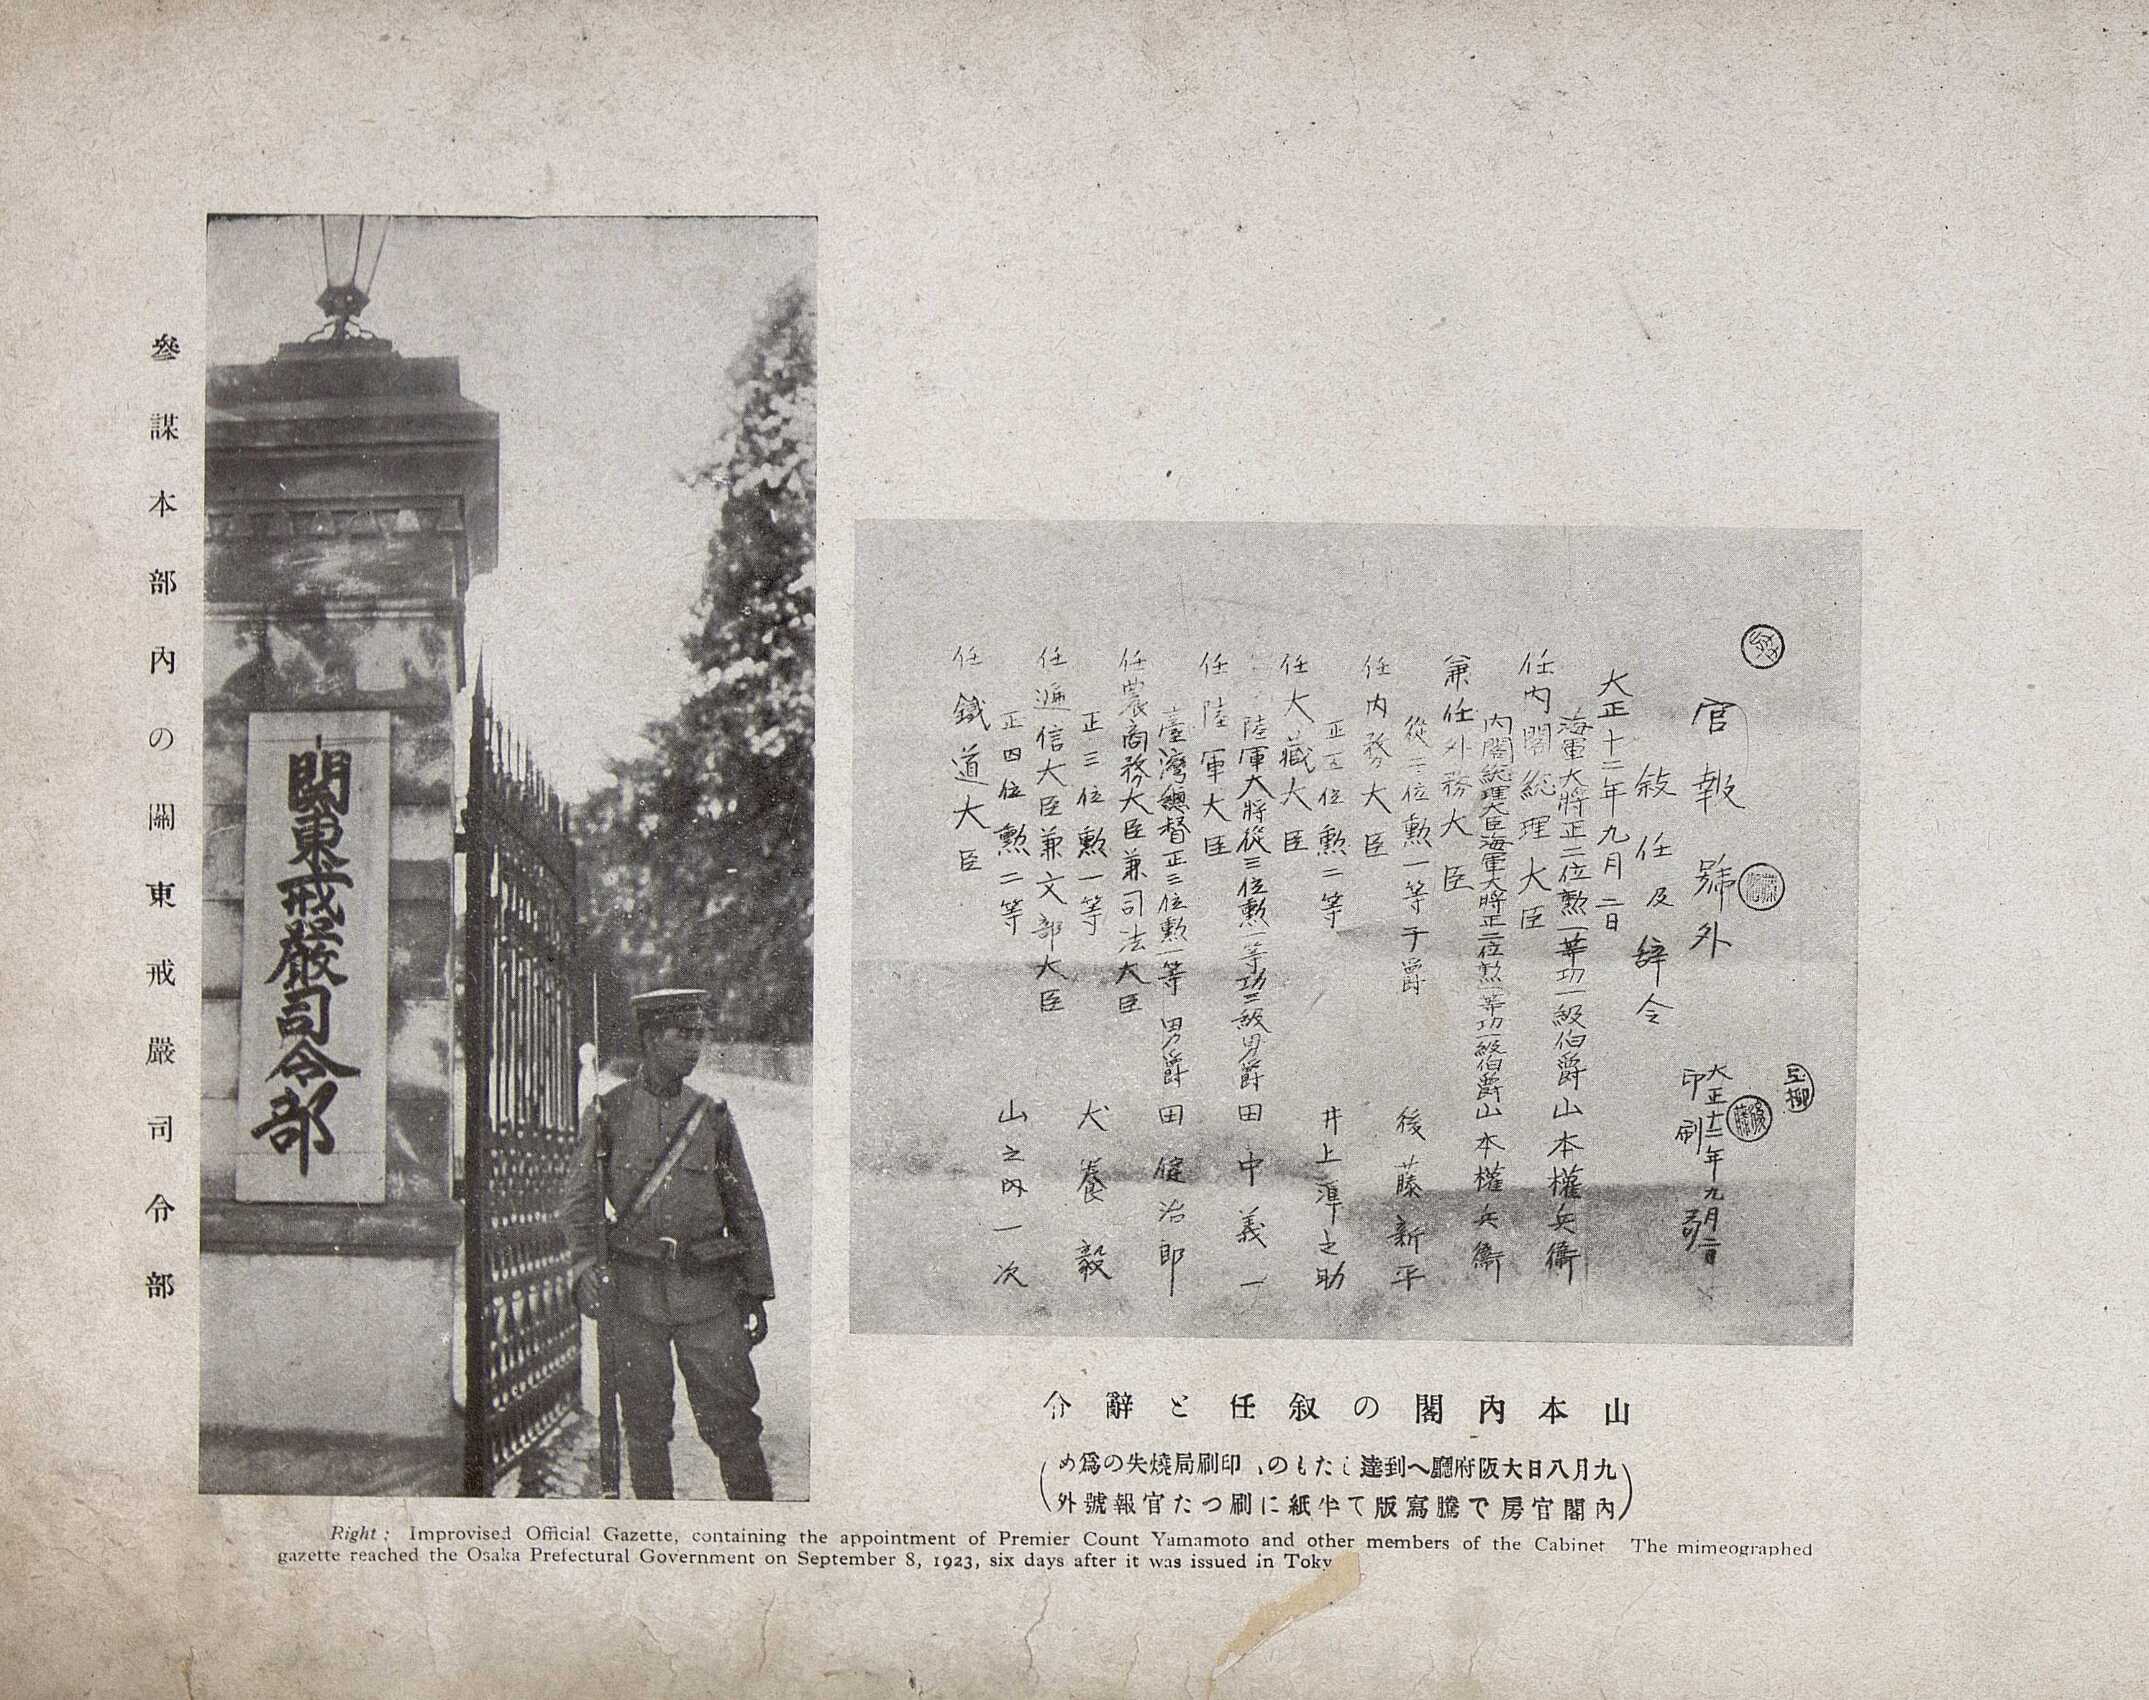 參謀本部內の關東戒嚴司令部
関東戒嚴司令部
官報號外
大正十二年九月二日
印刷
敍任及辞令
大正十二年九月二日
海軍大将正二位勲一等功一級伯爵山本權兵衞
任内閣総理大臣
内閣総理大臣海軍大将正二位勲一等功一級伯爵山本權兵衞
兼任外務大臣
從二位勲一等子爵後藤新平
任内務大臣
正五位勲二等井上準之助
任大藏大臣
陸軍大將從三位勲一等功三級男爵田中義一
任陸軍大臣
臺灣總督正三位勲一等男爵田健治郎
任農商務大臣兼司法大臣
正三位勲一等犬養毅
任逓信大臣兼文部大臣
正四位勲二等山之内一次
任鐵道大臣
山本內閣の叙任と辭令
(九月八日大阪府廳へ到達したもの、印刷局燒失の爲め
內閣官房で謄寫版て半紙に刷つた官報號外)
Right: Improvised Official Gazette, containing the appointment of Premier Count Yamamoto and other members of the Cabinet The mimeographed
gazette reached the Osaka Prefectural Government on September 8, 1923, six days after it was issued in Toky